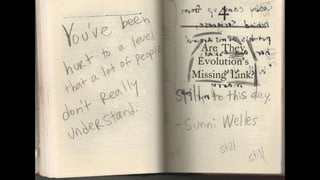 You've been
hurt to a level
that a lot of people
don't really
understand.
4
Are They
Evolution's
Missing Link?
still to this day.
- Sunni Welles
still
still